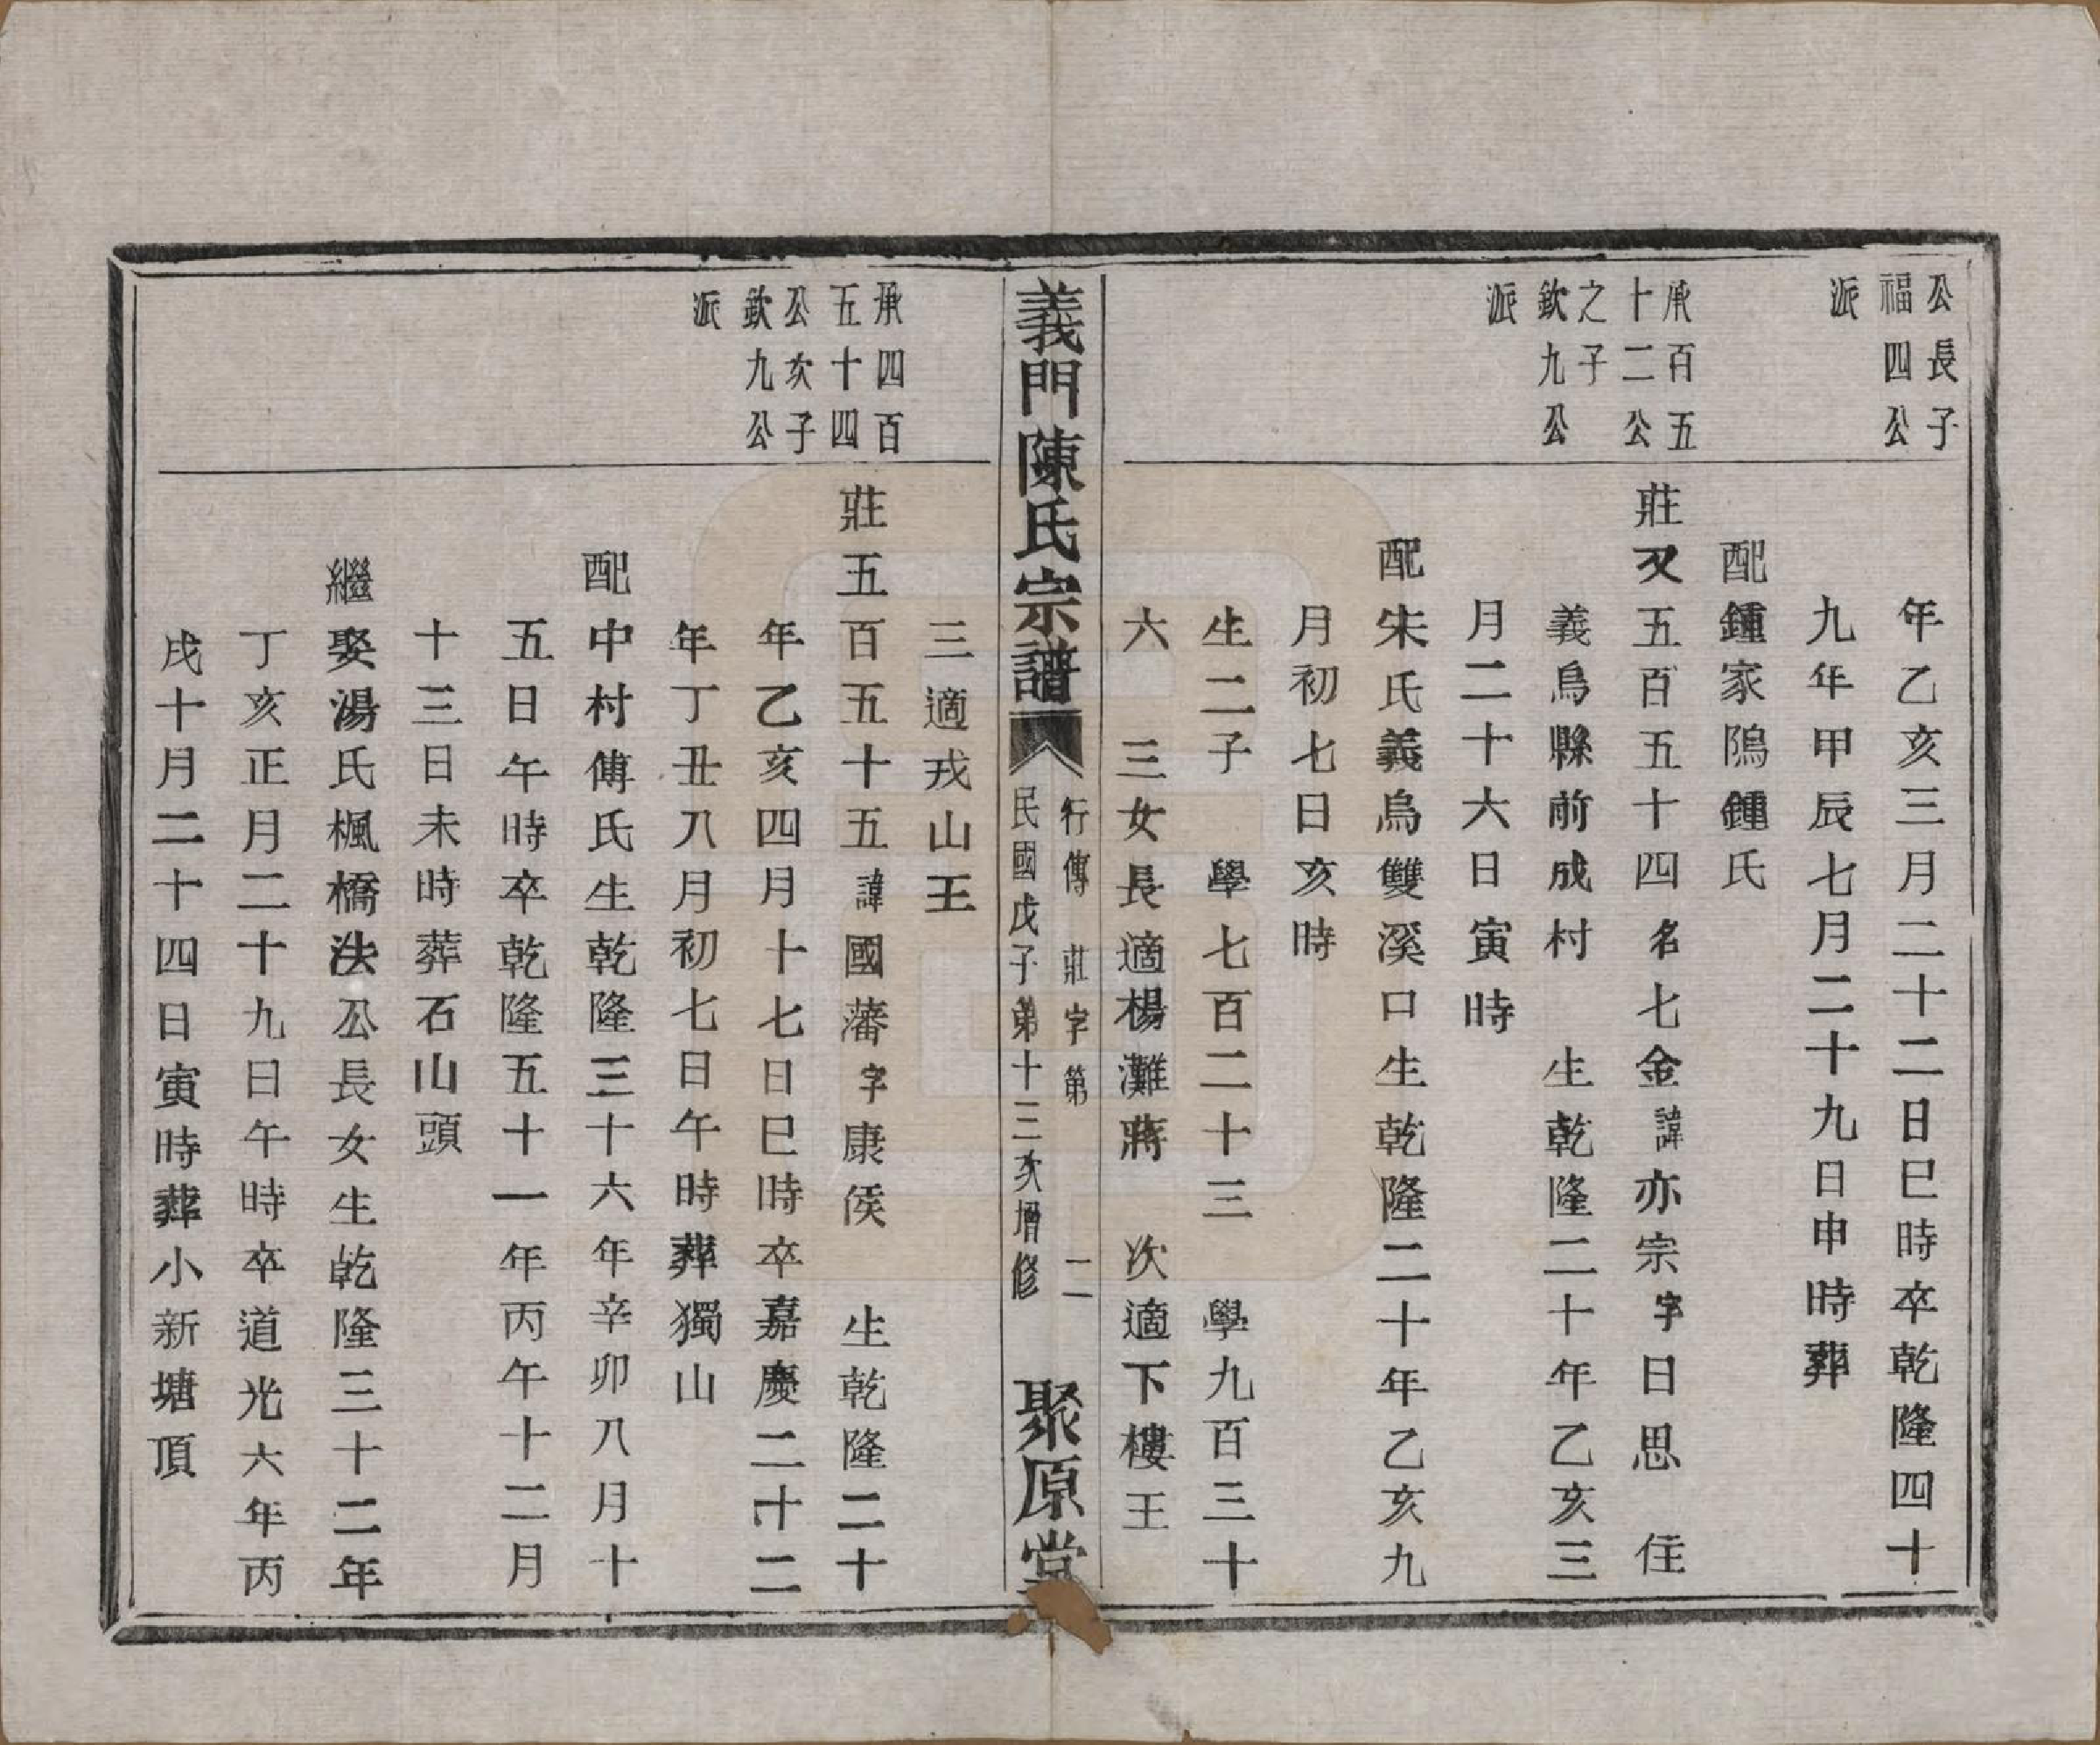 公長子
福四公
派
年乙亥三月二十二日巳時卒乾隆四十
九年甲辰七月二十九日申時葬
配鍾家隖鍾氏
承百五
十二公
之子
欽九公
派
莊又五百五十四名七金諱亦宗字日思 住
義烏縣前成村 生乾隆二十年乙亥三
月二十六日寅時
配朱氏義烏雙溪口生乾隆二十年乙亥九
月初七日亥時
生二子 學七百二十三 學九百三十
六 三女長適楊灘蔣 次適下樓王
義門陳氏宗譜
行傳 莊字第 二
民國戊子第十三次增修
聚原堂
三適戎山王
承四百
五十四
公次子
欽九公
派
莊五百五十五諱國藩字康侯 生乾隆二十
年乙亥四月十七日巳時卒嘉慶二十二
年丁丑八月初七日午時葬獨山
配中村傅氏生乾隆三十六年辛卯八月十
五日午時卒乾隆五十一年丙午十二月
十三日未時葬石山頭
繼娶湯氏楓橋泆公長女生乾隆三十二年
丁亥正月二十九日午時卒道光六年丙
戌十月二十四日寅時葬小新塘頂